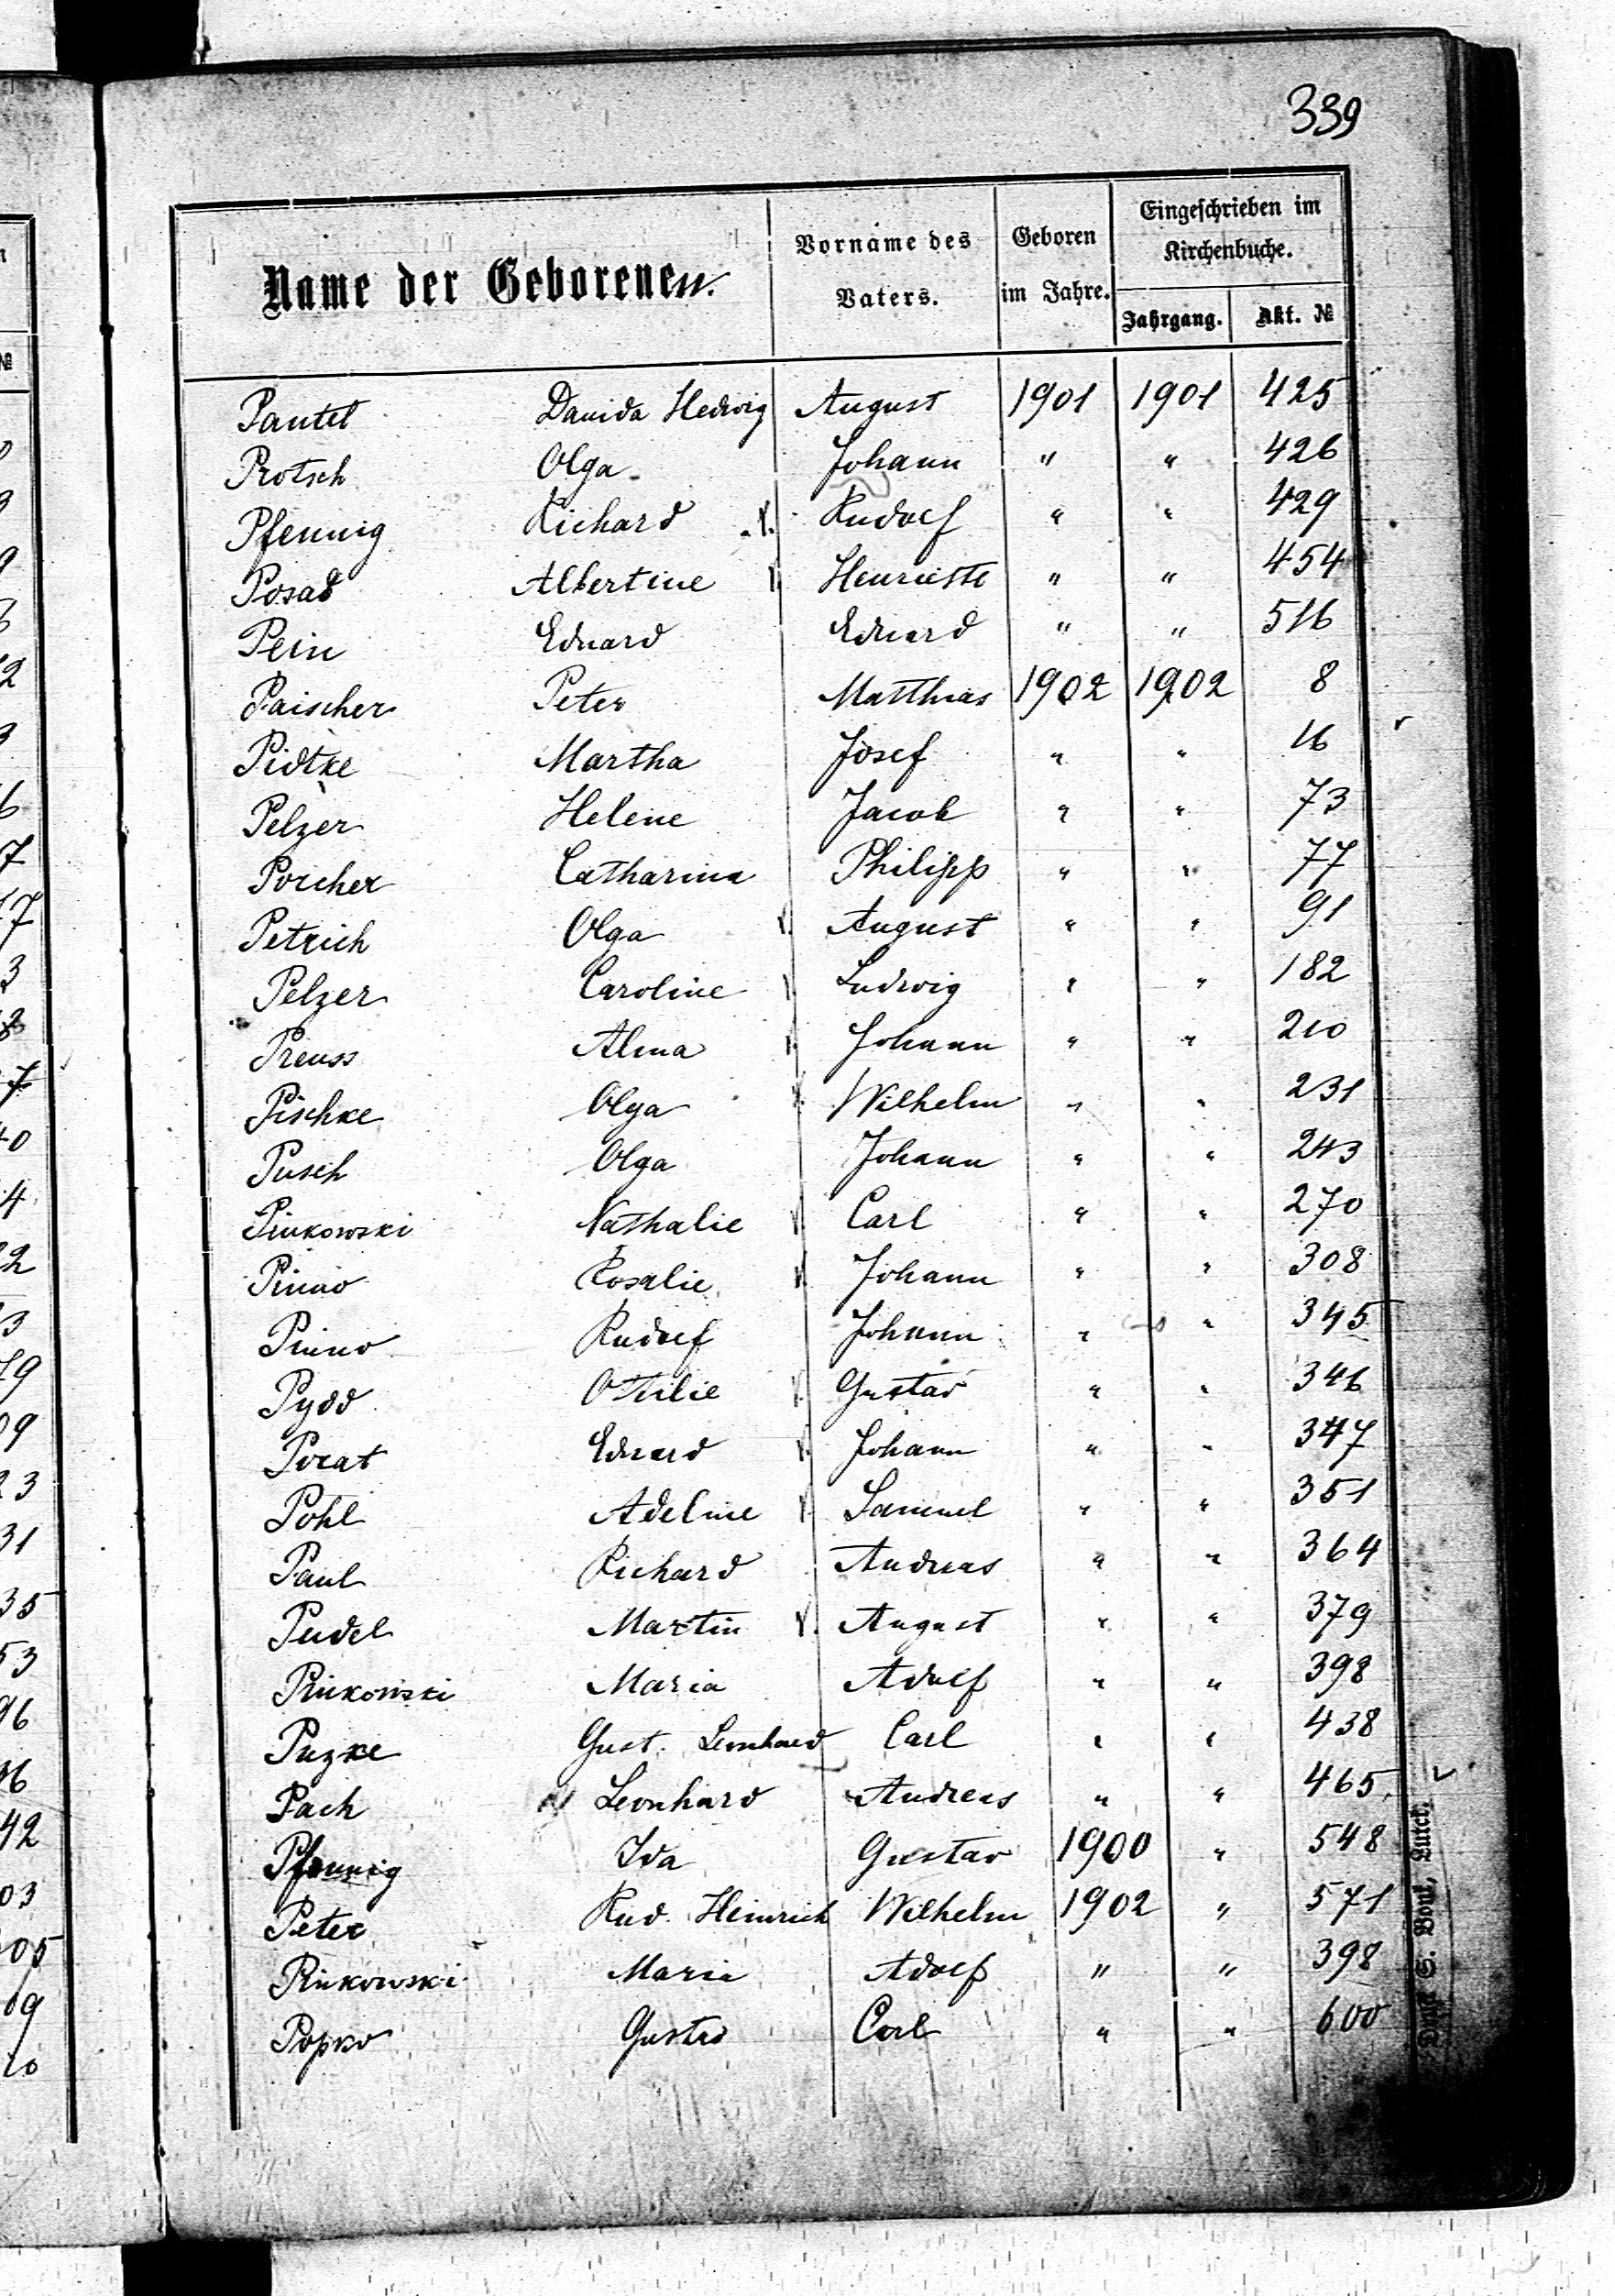 339
Name der Geborenen.
Vorname des Vaters.
Geboren im Jahre.
Eingeschrieben im Kirchenbuche.
Jahrgang. Akt. №
Pantel Davida Hedwig August 1901 1901 425
Protsch Olga Johann " " 426
Pfennig Richard Rudolf " " 429
Posad Albertine Henriette " " 454
Pein Eduard Eduard " " 516
Paischer Peter Matthias 1902 1902 8
Pidtke Martha Josef " " 16
Pelzer Helene Jacob " " 73
Porcher Catharina Philipp " " 77
Petrich Olga August " " 91
Pelzer Caroline Ludwig " " 182
Preuss Alma Johann " " 210
Pischke Olga Wilhelm " " 231
Pusch Olga Johann " " 243
Pinkowski Nathalie Carl " " 270
Pinno Rosalie Johann " " 308
Pinno Rudolf Johann " " 345
Pydd Ottilie Gustav " " 346
Porat Eduard Johann " " 347
Pohl Adeline Samuel " " 351
Paul Richard Andreas " " 364
Pudel Martin August " " 379
Pinkowski Maria Adolf " " 398
Puzke Gust. Leonhard Carl " " 438
Pach Leonhard Andreas " " 465
Pfennig Ida Gustav 1900 " 548
Peter Rud. Heinrich Wilhelm 1902 " 571
Pinkowski Maria Adolf " " 398
Popko Gustav Carl " " 600